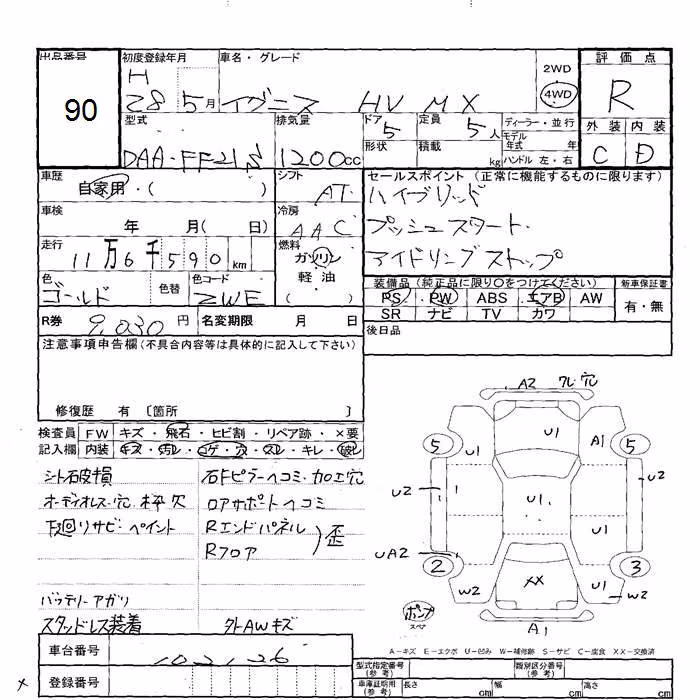 出品番号
90
初度登録年月
H 28 5月
車名・グレード
イグニス HV MX
2WD
4WD
評価点
R
外装 内装
C D
型式
DAA-FF21S
排気量
1200cc
ドア 5
形状
定員 5人
積載 kg
ディーラー・並行
モデル年式 年
ハンドル 左・右
車歴
自家用・( )
シフト
AT
セールスポイント (正常に機能するものに限ります)
ハイブリッド
プッシュスタート
アイドリングストップ
車検
年 月( 日)
冷房
AAC
走行
11万6千590km
燃料
ガソリン
軽油
( )
色
ゴールド
色替
色コード
ZWE
装備品 (純正品に限り○をつけてください)
PS PW ABS エアB AW
SR ナビ TV カワ
新車保証書
有・無
R券 9,030円
名変期限 月 日
後日品
注意事項申告欄 (不具合内容等は具体的に記入して下さい)
修復歴 有 〔箇所 〕
検査員 FW キズ・飛石・ヒビ割・リペア跡・×要
記入欄 内装 キズ・汚レ・コゲ・穴・スレ・キレ・破レ
シート破損
オーディオレス・穴・枠欠
下廻リサビ・ペイント
バッテリーアガリ
スタッドレス装着
右Fピラーヘコミ・加工穴
ロアサポートヘコミ
Rエンドパネル
Rフロア
歪
外AWキズ
A2 フレ 穴
U1
5
U1
A1
5
U2
U1
U2
U1
UA2
2
XX
U1
3
W2
W2
ポンプ
スペア
A1
A-キズ E-エクボ U-凹み W-補修跡 S-サビ C-腐食 XX-交換済
車台番号 102126
登録番号
型式指定番号 (参考)
類別区分番号 (参考)
車庫証明用 (参考)
長さ cm
幅 cm
高さ cm